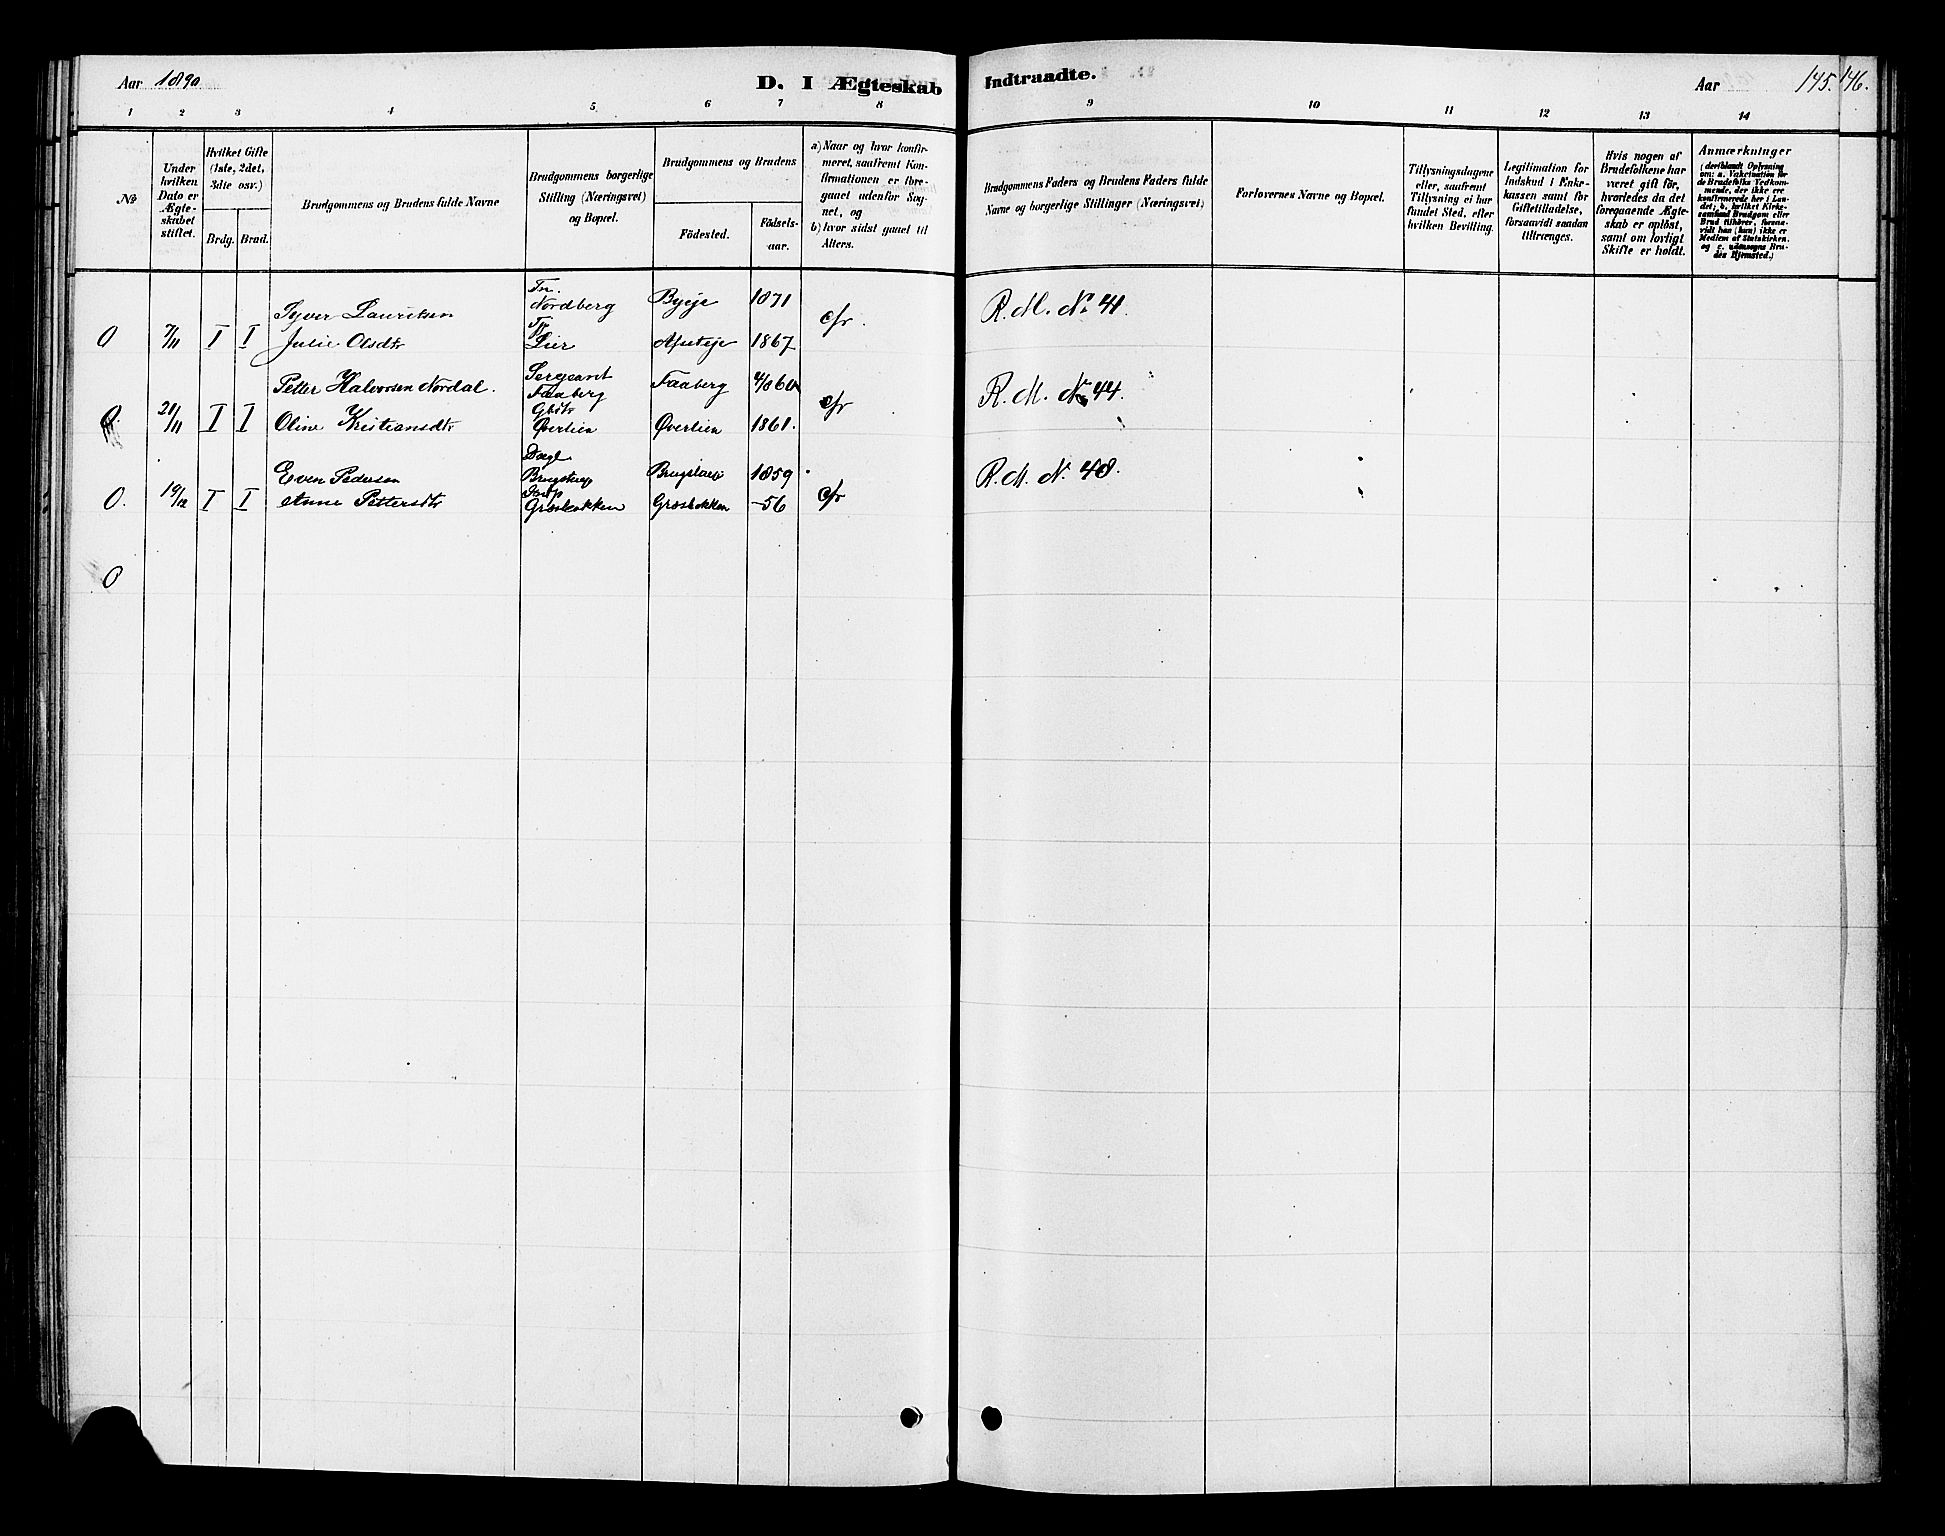 Aar 1890
D. I Ægteskab Indtraadte.
Aar
145. 146.
1 2 3 4 5 6 7 8 9 10 11 12 13 14
No
Under hvilken Dato er Ægte-skabet stiftet.
Hvilket Gifte (1ste, 2det, 3dte osv.)
Brdg. Brud.
Brudgommens og Brudens fulde Navne
Brudgommens borgerlige Stilling (Næringsvei) og Bopæl.
Brudgommens og Brudens
Födested.
Födsels-aar.
a) Naar og hvor konfir-meret, saafremt Kon-firmationen er fore-gaaet udenfor Sog-net, og
b) hvor sidst gaaet til Alters.
Brudgommens Faders og Brudens Faders fulde Navne og borgerlige Stillinger (Næringsvei)
Forlovernes Navne og Bopæl.
Tillysningsdagene eller, saafremt Tillysning ei har fundet Sted, efter hvilken Bevilling.
Legitimation for Indskud i Enke-kassen samt for Giftetilladelse, forsaavidt saadan tiltrænges.
Hvis nogen af Brudefolkene har været gift før, hvorledes da det foregaaende Ægte-skab er opløst, samt om lovligt Skifte er holdt.
Anmærkninger
(deriblandt Oplysning om: a. Vakcination for de Brudefolks Vedkom-mende, der ikke ere konfirmerede her i Lan-det; b. hvilket Kirke-samfund Brudgom eller Brud tilhører, forsaa-vidt han (hun) ikke er Medlem af Statskirken, og c. udensogns Bru-des Hjemsted.)
Syver Lauritsen Nordberg Byeje 1871
0 7/11 I I Julie Olsdtr Lier 1867 cfr. R. M. No 41.
Petter Halvorsen Nordal. Sergeant Faaberg Faaberg 4/8 60
0. 21/11 I I Oline Kristiansdtr Gbdtr Øverlien Øverlien 1861. cfr R. M. No 44.
Even Pedersen 1859
0. 19/12 I I Anne Pettersdtr Græsbakken Græsbakken -56 cfr R. M. N. 48.
0